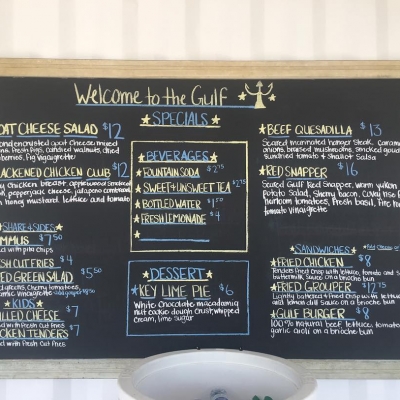 Welcome to the Gulf
SPECIALS
OAT CHEESE SALAD $12
ondencrusted goat cheese mixed
ens, fresh figs, candied walnuts, dried
berries, Fig Vinaigrette
ACKENED CHICKEN CLUB $12
chicken breast, applewood smoked
pepperjack cheese,
honey mustard, lettuce and tomato
SHARE & SIDES
MMUS $7.50
ed with pita chips
SH CUT FRIES $4
ED GREEN SALAD $5.50
greens, cherry tomatoes,
vinaigrette
KIDS
LLED CHEESE $7
ed with fresh cut fries
CKEN TENDERS $7
ed with fresh cut fries
BEVERAGES
FOUNTAIN SODA $2.75
SWEET & UNSWEET TEA $2.75
BOTTLED WATER $1.50
FRESH LEMONADE $4
DESSERT
KEY LIME PIE $6
White Chocolate macadamia
nut cookie dough crust, whipped
cream, lime sugar
BEEF QUESADILLA $13
Seared marinated hanger steak, Caram
onions, braised mushrooms, smoked goud
Sundried tomato & Shallot Salsa
RED SNAPPER $16
Seared Gulf Red Snapper, warm yukon
Potato Salad, Sherry bacon,
heirloom tomatoes, fresh basil, fire
tomato vinaigrette
SANDWICHES
Add Cheese
FRIED CHICKEN $8
Tenders fried crisp with lettuce, tomato and
buttermilk sauce on a brioche bun
FRIED GROUPER $12.75
Lightly battered & fried crisp with lettuce,
and lemon dill sauce on a brioche bun
GULF BURGER $8
100% natural beef, lettuce, tomato,
garlic aioli on a brioche bun